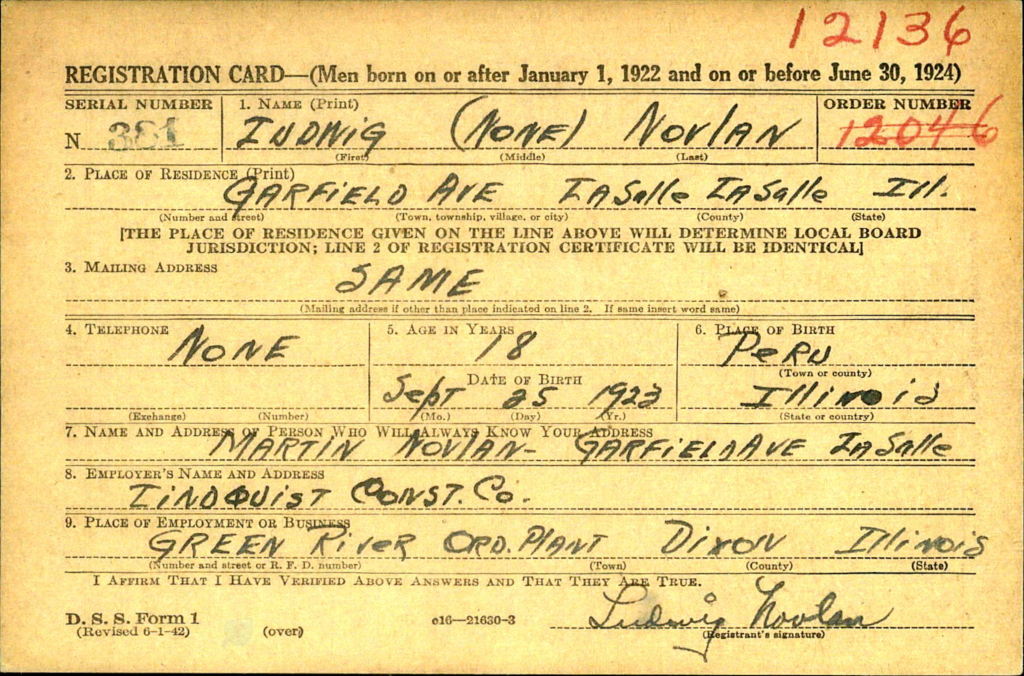 12136
REGISTRATION CARD—(Men born on or after January 1, 1922 and on or before June 30, 1924)
SERIAL NUMBER 1. NAME (Print) ORDER NUMBER
N 381 LUDWIG (NONE) NOVLAN 12046
(First) (Middle) (Last)
2. PLACE OF RESIDENCE (Print)
GARFIELD AVE LaSalle LaSalle Ill.
(Number and street) (Town, township, village, or city) (County) (State)
[THE PLACE OF RESIDENCE GIVEN ON THE LINE ABOVE WILL DETERMINE LOCAL BOARD
JURISDICTION; LINE 2 OF REGISTRATION CERTIFICATE WILL BE IDENTICAL]
3. MAILING ADDRESS
SAME
(Mailing address if other than place indicated on line 2. If same insert word same)
4. TELEPHONE 5. AGE IN YEARS 6. PLACE OF BIRTH
NONE 18 PERU
(Town or county)
DATE OF BIRTH
Sept 25 1923 Illinois
(Exchange) (Number) (Mo.) (Day) (Yr.) (State or country)
7. NAME AND ADDRESS OF PERSON WHO WILL ALWAYS KNOW YOUR ADDRESS
MARTIN NOVLAN- GARFIELD AVE LaSalle
8. EMPLOYER'S NAME AND ADDRESS
LINDQUIST CONST. Co.
9. PLACE OF EMPLOYMENT OR BUSINESS
GREEN RIVER ORD. PLANT DIXON Illinois
(Number and street or R. F. D. number) (Town) (County) (State)
I AFFIRM THAT I HAVE VERIFIED ABOVE ANSWERS AND THAT THEY ARE TRUE.
D. S. S. Form 1
(Revised 6-1-42) (over) c16—21630-3 Ludwig Novlan
(Registrant's signature)